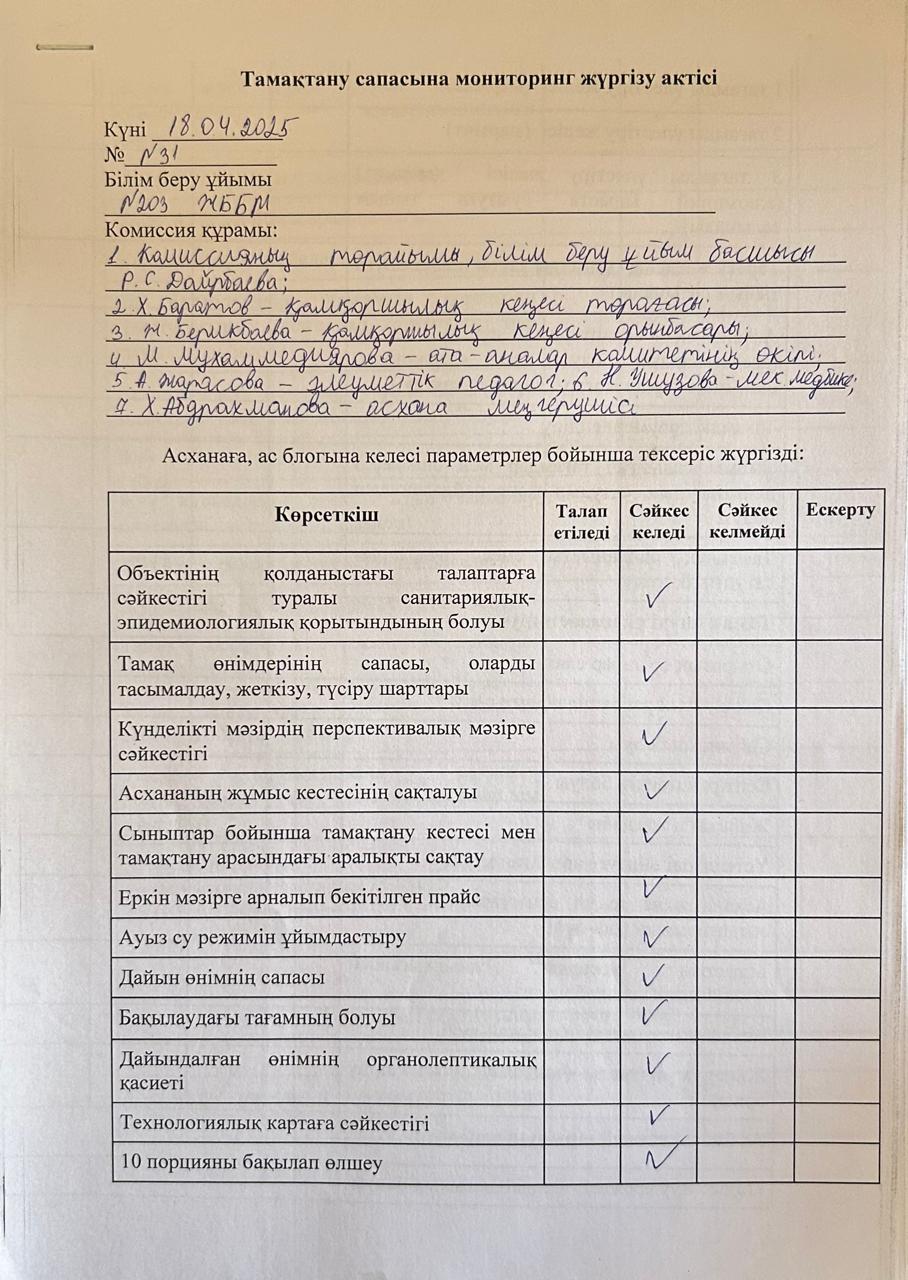 Тамақтану сапасына мониторинг жүргізу актісі
Күні 18.04.2025
№ N31
Білім беру ұйымы
N203 ЖББМ
Комиссия құрамы:
1. Комиссияның төрайымы, білім беру ұйым басшысы
Р.С. Даирбаева;
2. Х. Баратов – қамқоршылық кеңесі төрағасы;
3. Н. Берикбаева – қамқоршылық кеңесі орынбасары;
4. М. Мухаммедиярова – ата-аналар комитетінің өкілі.
5. А. Жарасова – әлеуметтік педагог; 6. Н. Ушузова – мек медбике;
7. Х. Абдрахманова – асхана меңгерушісі
Асханаға, ас блогына келесі параметрлер бойынша тексеріс жүргізді:
Көрсеткіш Талап Сәйкес Сәйкес Ескерту
етіледі келеді келмейді
Объектінің қолданыстағы талаптарға
сәйкестігі туралы санитариялық-
эпидемиологиялық қорытындының болуы ✓
Тамақ өнімдерінің сапасы, оларды
тасымалдау, жеткізу, түсіру шарттары ✓
Күнделікті мәзірдің перспективалық мәзірге
сәйкестігі ✓
Асхананың жұмыс кестесінің сақталуы ✓
Сыныптар бойынша тамақтану кестесі мен
тамақтану арасындағы аралықты сақтау ✓
Еркін мәзірге арналып бекітілген прайс ✓
Ауыз су режимін ұйымдастыру ✓
Дайын өнімнің сапасы ✓
Бақылаудағы тағамның болуы ✓
Дайындалған өнімнің органолептикалық
қасиеті ✓
Технологиялық картаға сәйкестігі ✓
10 порцияны бақылап өлшеу ✓